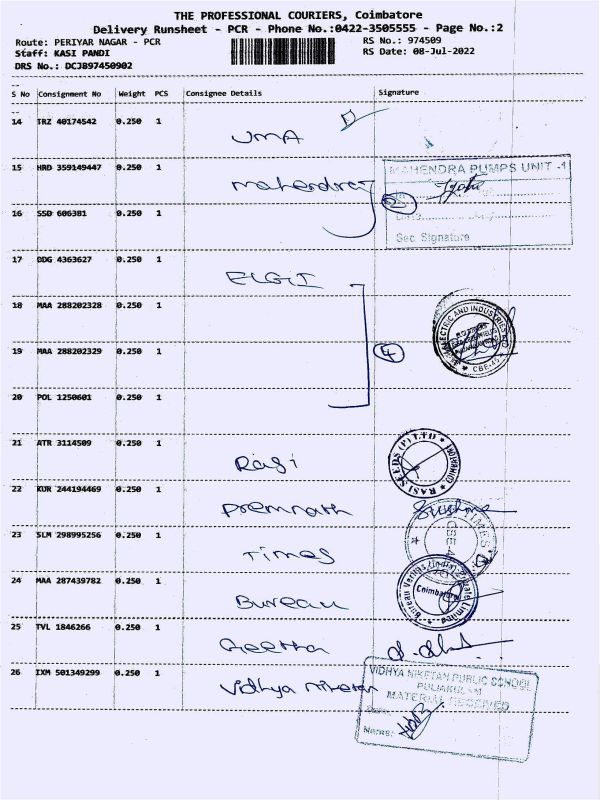 THE PROFESSIONAL COURIERS, Coimbatore
Delivery Runsheet - PCR - Phone No.:0422-3505555 - Page No.:2
Route: PERIYAR NAGAR - PCR RS No.: 974509
Staff: KASI PANDI RS Date: 08-Jul-2022
DRS No.: DCJB97450902
S No Consignment No Weight PCS Consignee Details Signature
14 TRZ 40174542 0.250 1
UMA
15 HRD 359149447 0.250 1
Mahendra
MAHENDRA PUMPS UNIT -1
16 SSD 606381 0.250 1
2
Sec Signature
17 DDG 4363627 0.250 1
ELGI
18 MAA 288202328 0.250 1
19 MAA 288202329 0.250 1
4
ELECTRIC AND INDUSTRIES
CBE-45
20 POL 1250601 0.250 1
21 ATR 3114509 0.250 1
Rasi
RASI SEEDS (P) LTD
22 KUR 244194469 0.250 1
Premnath
23 SLM 298995256 0.250 1
Times
TIMES
24 MAA 287439782 0.250 1
Bureau
Bureau Veritas (India) Private Limited
Coimbatore
25 TVL 1846266 0.250 1
Geetha
26 IXM 501349299 0.250 1
Vidhya Niketan
VIDHYA NIKETAN PUBLIC SCHOOL
PULIAKULAM
MATERIAL RECEIVED
Name: